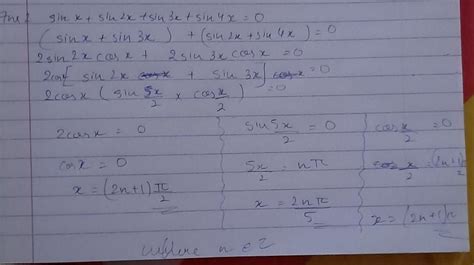 Ans 2 sin x + sin 2x + sin 3x + sin 4x = 0
(sin x + sin 3x) + (sin 2x + sin 4x) = 0
2 sin 2x cos x + 2 sin 3x cos x = 0
2 cos x [ sin 2x + sin 3x ] = 0
2 cos x ( sin 5x/2 x cos x/2 ) = 0
2 cos x = 0
cos x = 0
x = (2n+1) π/2
sin 5x/2 = 0
5x/2 = nπ
x = 2nπ/5
cos x/2 = 0
x/2 = (2n+1)
x = (2n+1)π
where n ∈ Z